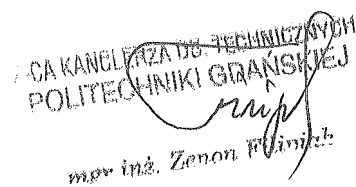 CA KANCLERZA DS. TECHNICZNYCH
POLITECHNIKI GDAŃSKIEJ
mgr inż. Zenon